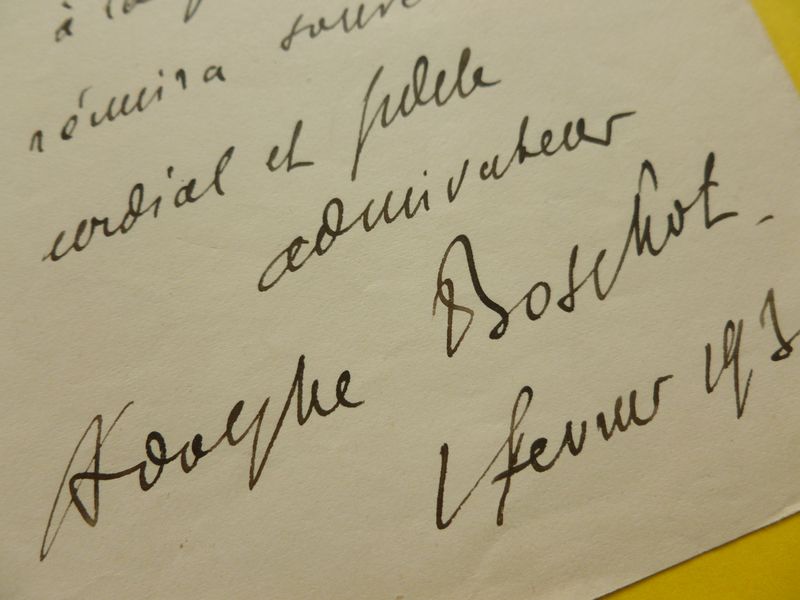 à
réunira
cordial et fidèle
admirateur
Adolphe Boschot.
1 février 193